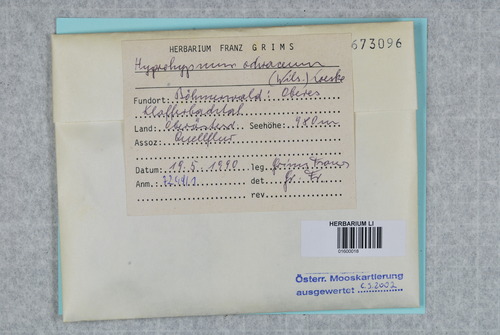 HERBARIUM FRANZ GRIMS
673096
Hygrohypnum ochraceum
(Wils.) Loeske
Fundort: Böhmerwald: Oberes
Klafferbachtal
Land: Oberösterr. Seehöhe: 980m
Assoz: Quellflur
Datum: 19.5.1990 leg. Grims Franz
Anm.: det Gr. Fr.
rev.
HERBARIUM LI
01600018
Österr. Mooskartierung
ausgewertet 6.3.2002